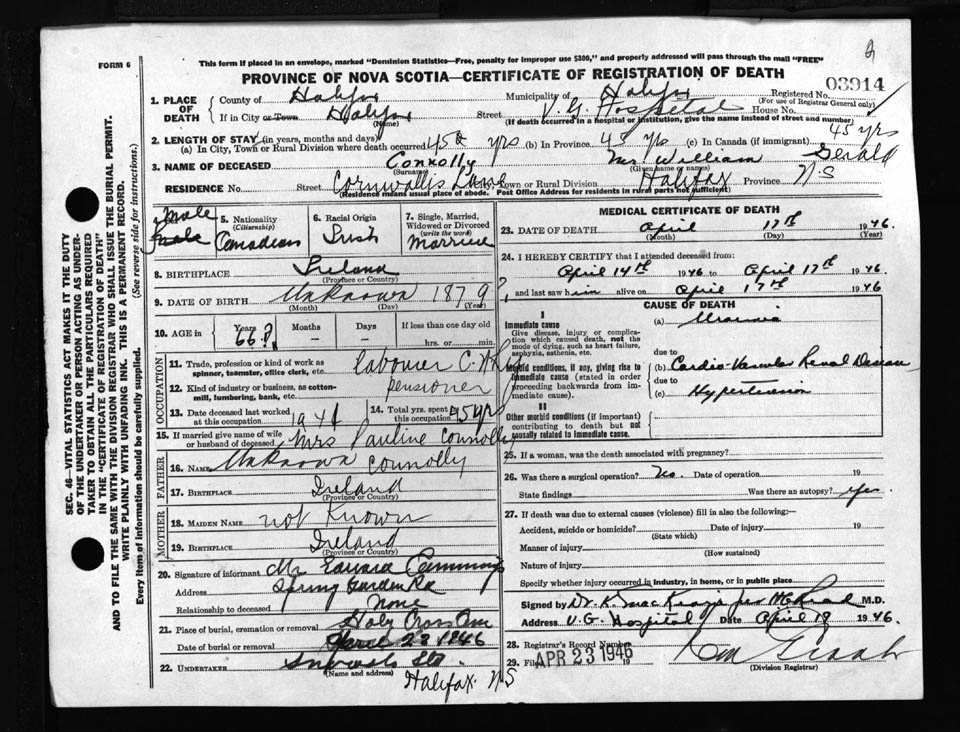 FORM 6
This form if placed in an envelope, marked "Dominion Statistics—Free, penalty for improper use $300," and properly addressed will pass through the mail "FREE"
PROVINCE OF NOVA SCOTIA—CERTIFICATE OF REGISTRATION OF DEATH
Registered No. 03914
(For use of Registrar General only)
1. PLACE OF DEATH
County of Halifax
Municipality of Halifax
If in City or Town Halifax
(Name)
Street V. G. Hospital House No.
(If death occurred in a hospital or institution, give the name instead of street and number)
2. LENGTH OF STAY (in years, months and days)
(a) In City, Town or Rural Division where death occurred 45 yrs (b) In Province 45 yrs (c) In Canada (if immigrant) 45 yrs
3. NAME OF DECEASED Connolly Mr William Gerald
(Surname) (Given name or names)
RESIDENCE No. Street Cornwallis Lane City, Town or Rural Division Halifax Province N.S
(Residence means usual place of abode. Post Office Address for residents in rural parts not sufficient)
male
5. Nationality (Citizenship) Canadian
6. Racial Origin Irish
7. Single, Married, Widowed or Divorced (write the word) Married
8. BIRTHPLACE Ireland
(Province or Country)
9. DATE OF BIRTH Unknown 1879?
(Month) (Day) (Year)
10. AGE in Years 66? Months – Days – If less than one day old hrs. or min.
OCCUPATION
11. Trade, profession or kind of work as spinner, teamster, office clerk, etc. labourer C.N.Ry
12. Kind of industry or business, as cotton-mill, lumbering, bank, etc. pensioner
13. Date deceased last worked at this occupation 1941
14. Total yrs. spent in this occupation 25 yrs
15. If married give name of wife or husband of deceased Mrs Pauline Connolly
FATHER
16. NAME Unknown Connolly
17. BIRTHPLACE Ireland
(Province or Country)
MOTHER
18. MAIDEN NAME not Known
19. BIRTHPLACE Ireland
(Province or Country)
20. Signature of informant Mr. Edward Cummings
Address Spring Garden Rd
Relationship to deceased None
21. Place of burial, cremation or removal Holy Cross Cem
Date of burial or removal April 23 1946
22. UNDERTAKER Snows Ltd.
(Name and address)
Halifax N S
MEDICAL CERTIFICATE OF DEATH
23. DATE OF DEATH April 17th 1946
(Month) (Day) (Year)
24. I HEREBY CERTIFY that I attended deceased from:
April 14th 1946 to April 17th 1946
and last saw him alive on April 17th 1946
CAUSE OF DEATH
I
Immediate cause
Give disease, injury or complication which caused death, not the mode of dying, such as heart failure, asphyxia, asthenia, etc.
(a) Uraemia
due to
Morbid conditions, if any, giving rise to immediate cause (stated in order proceeding backwards from immediate cause).
(b) Cardio-Vascular Renal Disease
due to
(c) Hypertension
II
Other morbid conditions (if important) contributing to death but not causally related to immediate cause.
25. If a woman, was the death associated with pregnancy?
26. Was there a surgical operation? No. Date of operation 19
State findings Was there an autopsy? yes.
27. If death was due to external causes (violence) fill in also the following:—
Accident, suicide or homicide? Date of injury 19
(State which)
Manner of injury
(How sustained)
Nature of injury
Specify whether injury occurred in industry, in home, or in public place
Signed by Dr. K. MacKenzie per M.D.
Address V.G. Hospital Date April 19 1946.
28. Registrar's Record Number
29. Filed APR 23 1946 19
(Division Registrar)
SEC. 46—VITAL STATISTICS ACT MAKES IT THE DUTY
OF THE UNDERTAKER OR PERSON ACTING AS UNDER-
TAKER TO OBTAIN ALL THE PARTICULARS REQUIRED
IN THE "CERTIFICATE OF REGISTRATION OF DEATH"
AND TO FILE THE SAME WITH THE DIVISION REGISTRAR WHO SHALL ISSUE THE BURIAL PERMIT.
WRITE PLAINLY WITH UNFADING INK. THIS IS A PERMANENT RECORD.
Every item of information should be carefully supplied. (See reverse side for instructions.)